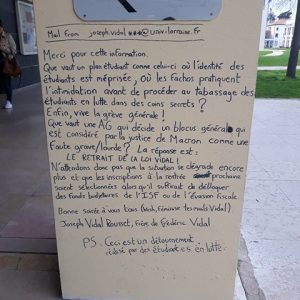 Mail from joseph.vidal***@univ-lorraine.fr
Merci pour cette information.
Que vaut un plan étudiant comme celui-ci où l'identité des
étudiants est méprisée, où les Fachos pratiquent
l'intimidation avant de procéder au tabassage des
étudiants en lutte dans des coins secrets ?
Enfin, vive la grève générale !
Que vaut une AG qui décide un blocus général qui
est considéré par la justice de Macron comme une
faute grave/lourde ? La réponse est :
LE RETRAIT DE LA LOI VIDAL !
N'attendons donc pas que la situation se dégrade encore
plus et que les inscriptions à la rentrée prochaine
soient sélectionnées alors qu'il suffirait de débloquer
des fonds budgétaires de l'ISF ou de l'évasion fiscale
Bonne soirée à vous tous
Joseph Vidal Rousset, frère de Frédéric Vidal
PS. Ceci est un détournement
réalisé par des étudiant.e.s en lutte.